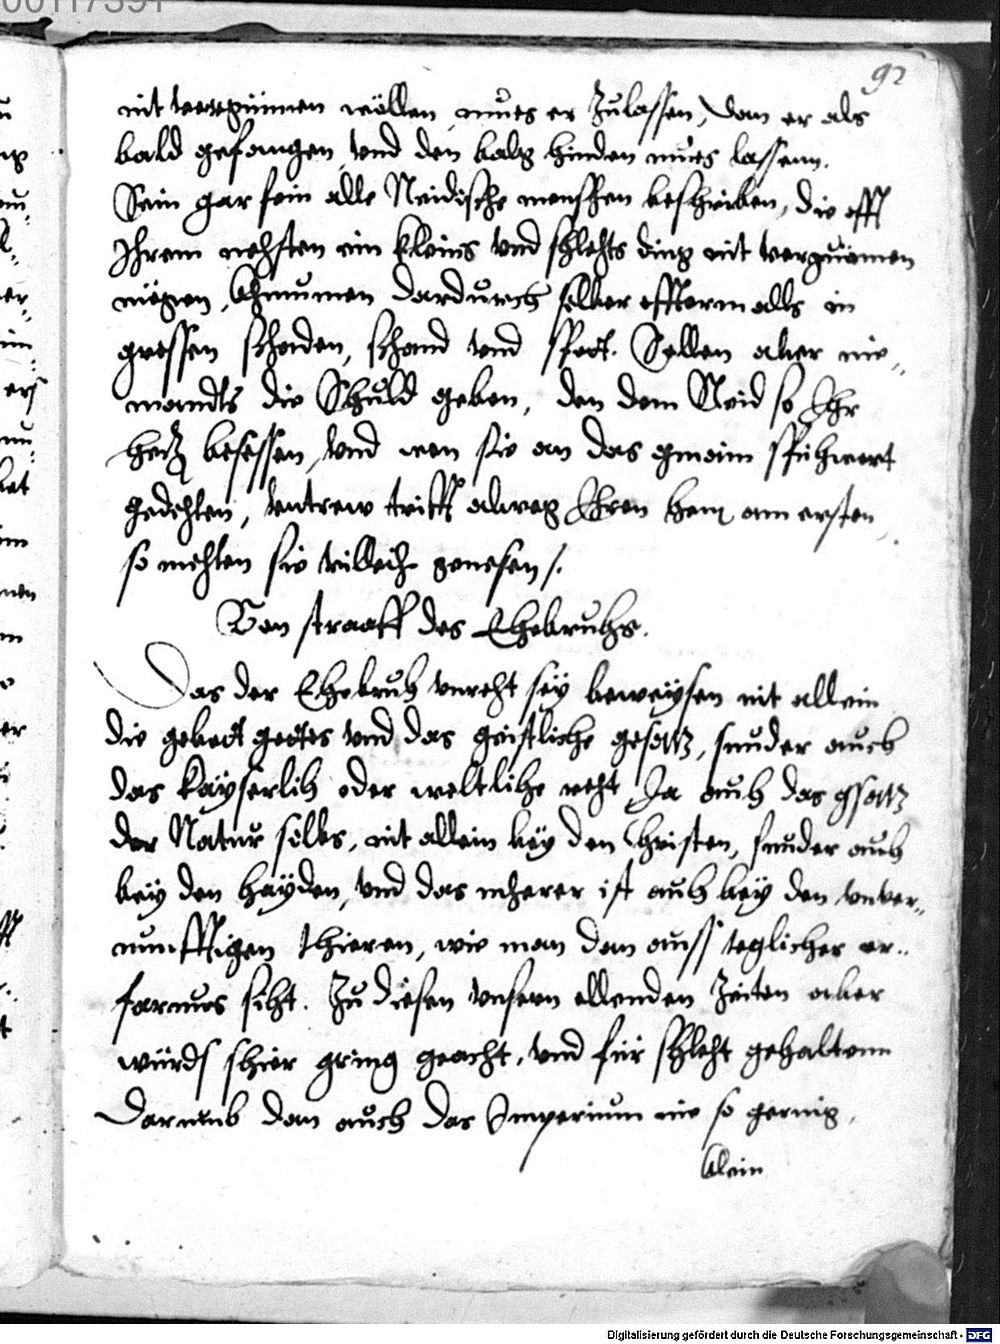 00117391
92
nit vergünnen wöllen, mues er Zulassen, dan er als
bald gefangen, vnd den balg hinden mues lassenn.
Sein gar fein alle Neidische menschen beschriben, die offt
Ihrem nehsten ein kleins vnd schlehts ding nit vergünnen
mögen, khummen dardurch selber offtermalls in
grossen schaden, schand vnd spott. Sollen aber nie-
mandts die Schuld geben, den dem Neid so Ihr
hertz besessen, vnd wen sie an das gmain sprihwort
gedehten, vntrew trifft alweg Ihren hern am ersten,
so mehten sie villeih genesen /.
Von straaff des Ehebruhs.
Das der Ehebruh vnreht seÿ beweÿsen nit allein
die gebott gottes vnd das geistliche gesatz, sunder auch
das kaÿserlih oder weltlihe reht, Ja auh das gsatz
der Natur selbs, nit allein beÿ den Christen, sunder auh
beÿ den haÿden, vnd das meherer ist auh beÿ den vnver-
nunfftigen thieren, wie man dan auss teglicher er-
farnus siht. Zu diesen vnsern ellenden Zeiten aber
würds schier gring geacht, vnd für schleht gehaltenn
Darumb dan auch das Imperium nie so gering,
klein
Digitalisierung gefördert durch die Deutsche Forschungsgemeinschaft - DFG